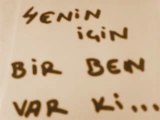 SENiN
iÇiN
BiR BEN
VAR Ki...